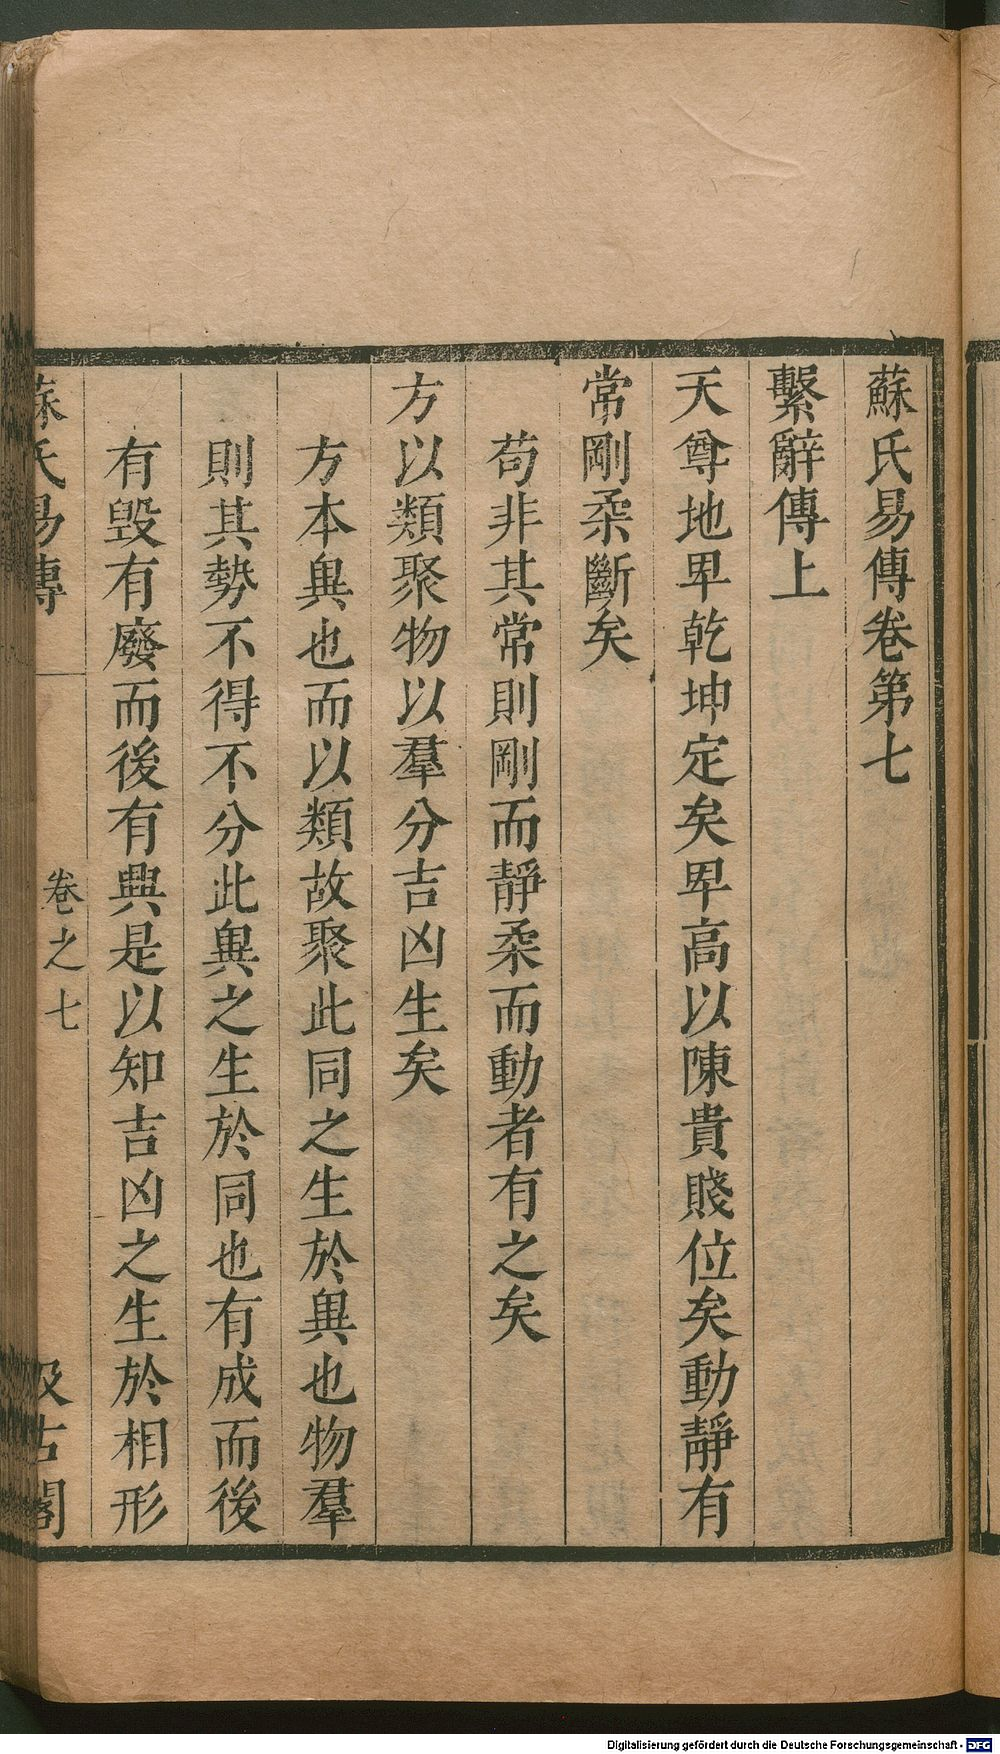 蘇氏易傳卷第七
繫辭傳上
天尊地卑乾坤定矣卑高以陳貴賤位矣動靜有
常剛柔斷矣
苟非其常則剛而靜柔而動者有之矣
方以類聚物以羣分吉凶生矣
方本異也而以類故聚此同之生於異也物羣
則其勢不得不分此異之生於同也有成而後
有毀有廢而後有興是以知吉凶之生於相形
蘇氏易傳
卷之七
汲古閣
Digitalisierung gefördert durch die Deutsche Forschungsgemeinschaft - DFG